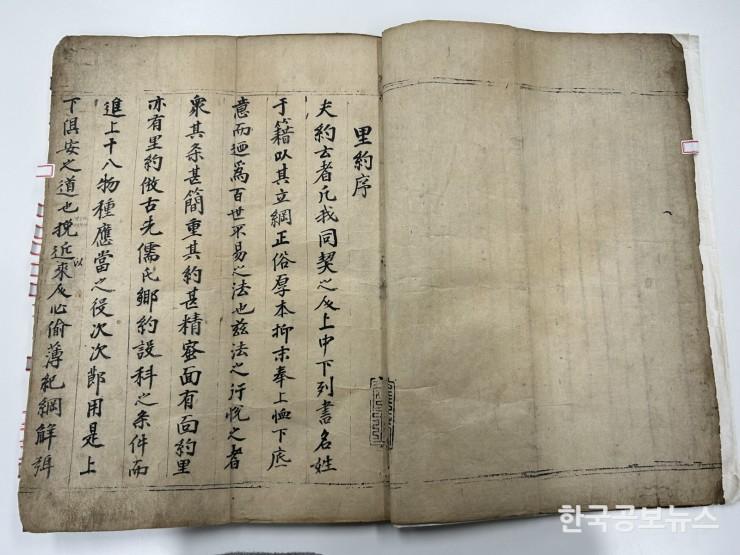 里約序
夫約云者凡我同契之民上中下列書名姓
于籍以其立綱正俗厚本抑末奉上恤下底
意而迺爲百世不易之法也兹法之行悅之者
衆其条甚簡重其約甚精密面有面約里
亦有里約倣古先儒氏鄉約設科之条件而
進上十八物種應當之役次次用是上
下俱安之道也挽近以來民心偷薄紀綱解弛
한국공보뉴스